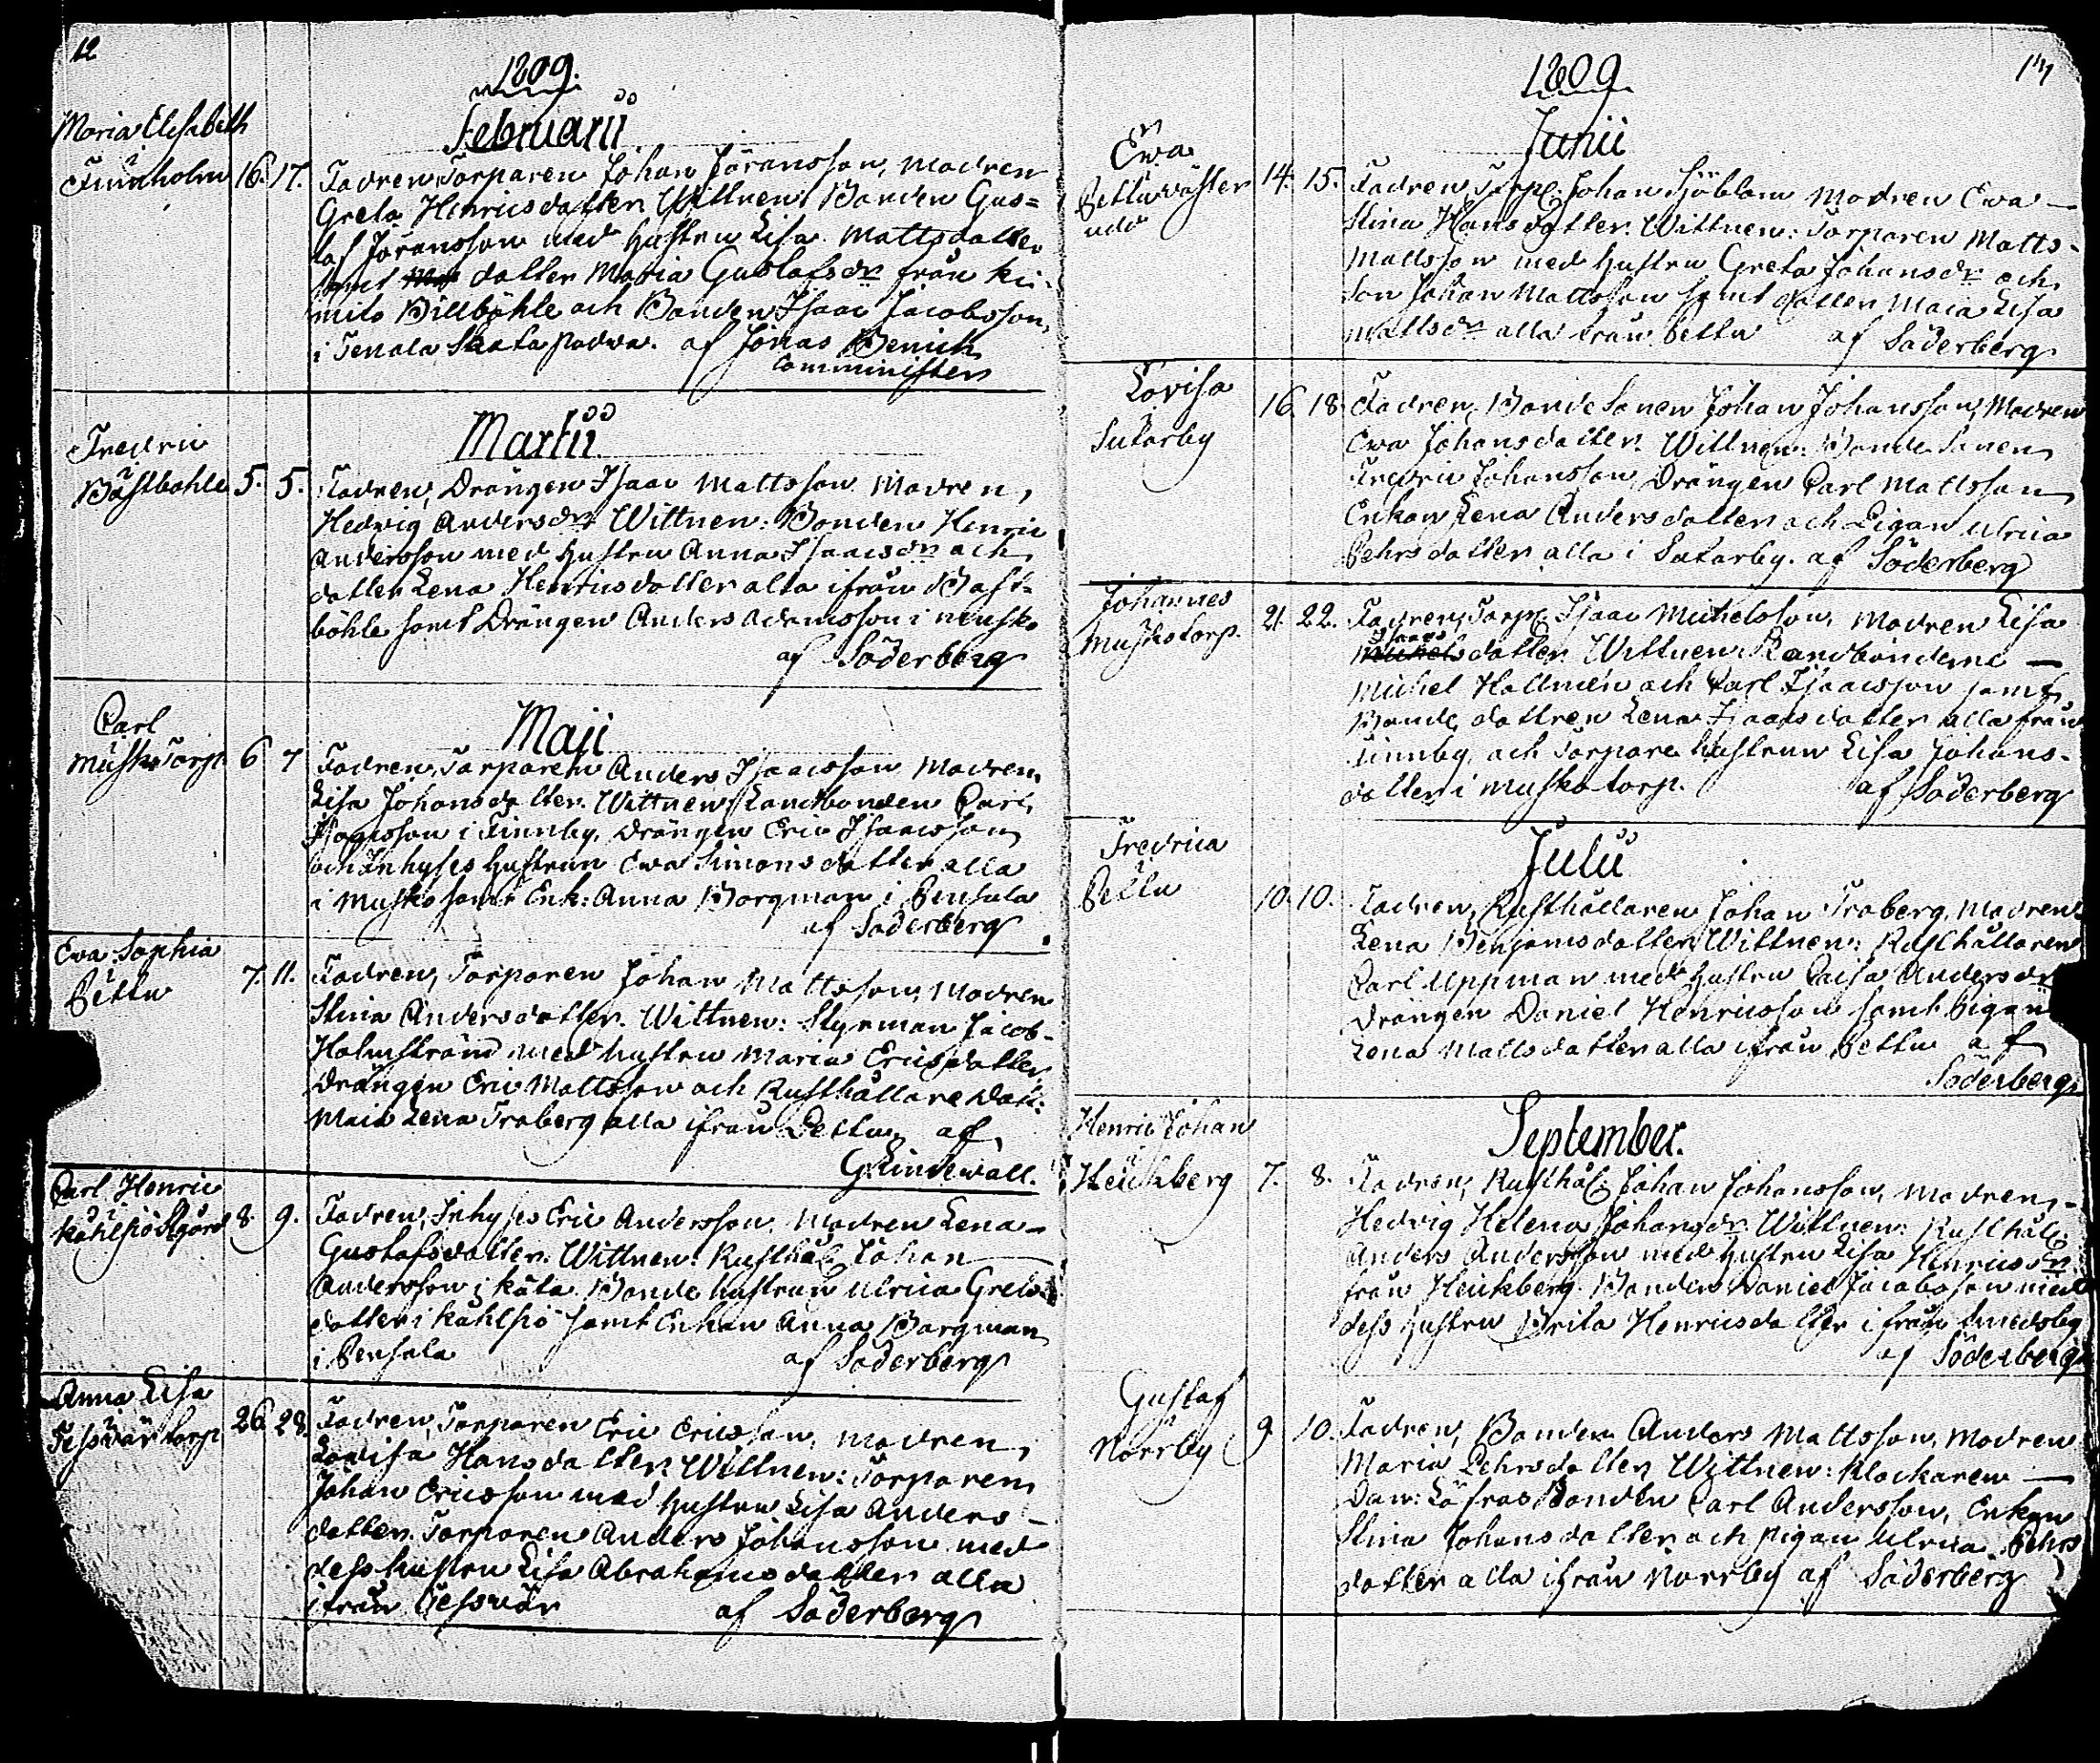 12
1809.
Februarii
Maria Elisabeth
Finnholm 16. 17. Fadren, Torparen Johan Jöransson, Modren
Greta Henricsdotter. Wittnen: Bonden Gus=
taf Jöransson med hustru Lisa Mattsdotter
samt dotter Maria Gustafsdr från Ki=
mito Billböhle och Bonden Isaac Jacobsson
i Tenala Skata fadra. af Jonas
Comminister
Martii
Fredric
Båstbohle 5. 5. Fadren, Drängen Isaac Mattsson Modren,
Hedvig Andersdr. Wittnen: Bonden Henric
Andersson med hustru Anna Isaacsdr och
dotter Lena Henricsdotter alla ifrån Båst-
böhle samt Drängen Anders Adamsson i Musko
af Söderberg
Maji
Carl
Musko Torp 6 7 Fadren, Torparen Anders Isaacsson Modren
Lisa Johansdotter. Wittnen: Landbonden Carl
Isaacsson i Finnby, Drängen Eric Isaacsson
och Inhyses hustrun Ewa Simonsdotter alla
i Musko samt Enk: Anna Borgman i Pensala
af Söderberg
Ewa Sophia
Pettu 7. 11. Fadren, Torparen Johan Mattsson, Modren
Stina Andersdotter. Wittnen: Styrman Jacob
Holmström med hustru Maria Ericsdotter,
Drängen Eric Mattsson och Rusthållare dott:
Maia Lena Traberg alla ifrån Pettu. af
G. Lindewall.
Carl Henric
Kählsiö Stgård 8. 9. Fadren, Inhyses Eric Andersson, Modren Lena
Gustafsdotter. Wittnen: Rusthål. Johan
Andersson i Käta Bonde hustrun Ulrica Grels
dotter i Kåhlsiö samt Enkan Anna Borgman
i Pensala af Söderberg
Anna Lisa
Tessvär torp 26. 28. Fadren, Torparen Eric Ericsson, Modren,
Lovisa Hansdotter. Wittnen: Torparen
Johan Ericsson med hustru Lisa Anders-
dotter. Torparen Anders Johansson med
dess hustru Lisa Abrahamsdotter alla
ifrån Tessvär af Söderberg
1809.
Junii
Ewa
Pettu wäster
udd 14. 15. Fadren, Torp. Johan Sjöblom Modren Ewa
Stina Hansdotter. Wittnen: Torparen Matts
Mattsson med hustru Greta Johansdr och
Son Johan Mattsson samt dotter Maia Lisa
Mattsdr alla från Pettu af Söderberg
Lovisa
Sutarby 16. 18. Fadren, Bonde Sonen Johan Johansson, Modren
Ewa Johansdotter. Wittnen: Bonde Sonen
Fredric Johansson, Drängen Carl Mattsson
Enkan Lena Andersdotter och Pigan Ulrica
Pehrsdotter alla i Sutarby. af Söderberg
Johannes
Musko torp. 21. 22. Fadren, Torp. Isaac Michelsson, Modren Lisa
Isaacs
Michelsdotter. Wittnen: Landbönderne
Michel Hallmén och Carl Isaacsson samt
Bonde dottren Lena Isaacsdotter alla från
Finnby, och Torpare hustrun Lisa Johans-
dotter i Musko torp. af Söderberg
Julii
Fredrica
Pettu 10. 10. Fadren, Rusthållaren Johan Traberg, Modren
Lena Benjamsdotter. Wittnen: Rusthållaren
Carl Uppman med hustru Caisa Andersdr
Drängen Daniel Henricsson samt Pigan
Lena Mattsdotter alla ifrån Pettu af
Söderberg
September.
Henric Johan
Heickberg 7. 8. Fadren, Rusthål. Johan Johansson, Modren,
Hedvig Helena Johansdr. Wittnen: Rusthål.
Anders Andersson med hustru Lisa Henricsdr
från Heickberg. Bonden Daniel Jacobsson med
dess hustru Brita Henricsdotter ifrån Smedsby
af Söderberg
Gustaf
Norrby 9. 10. Fadren, Bonden Anders Mattsson, Modren
Maria Pehrsdotter. Wittnen: Klockaren
Dan: Löfros Bonden Carl Andersson, Enkan
Stina Johansdotter och pigan Ulrica Pehrs
dotter alla ifrån Norrby af Söderberg